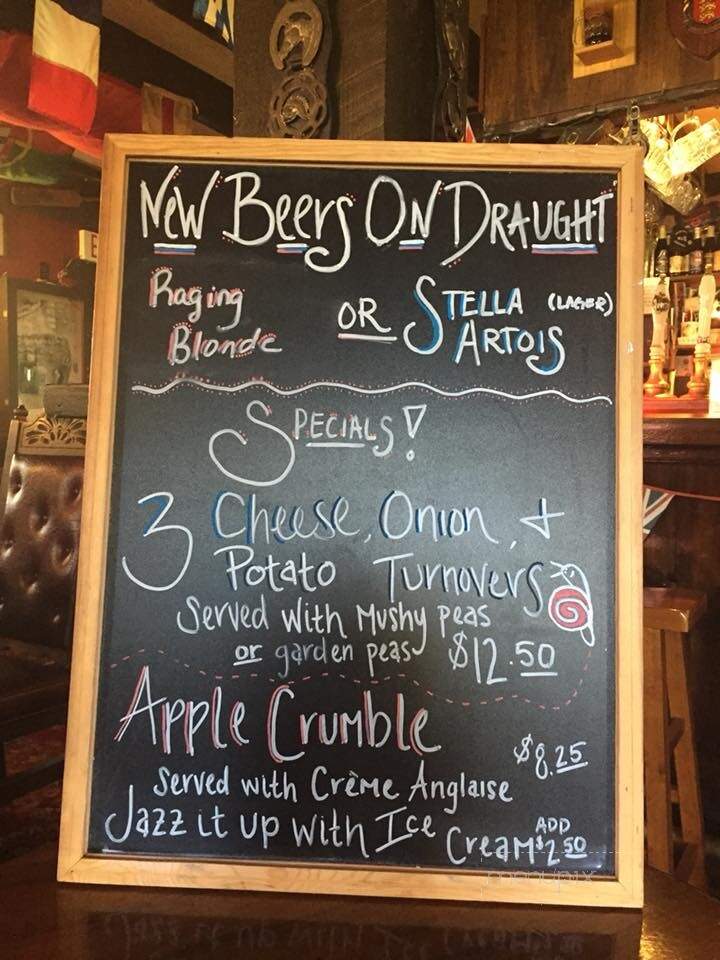 New Beers On Draught
Raging Blonde
OR Stella Artois (Lager)
Specials!
3 Cheese, Onion, +
Potato Turnovers
Served with Mushy peas
or garden peas $12.50
Apple Crumble
$8.25
Served with Crème Anglaise
Jazz it up with Ice Cream ADD $2.50